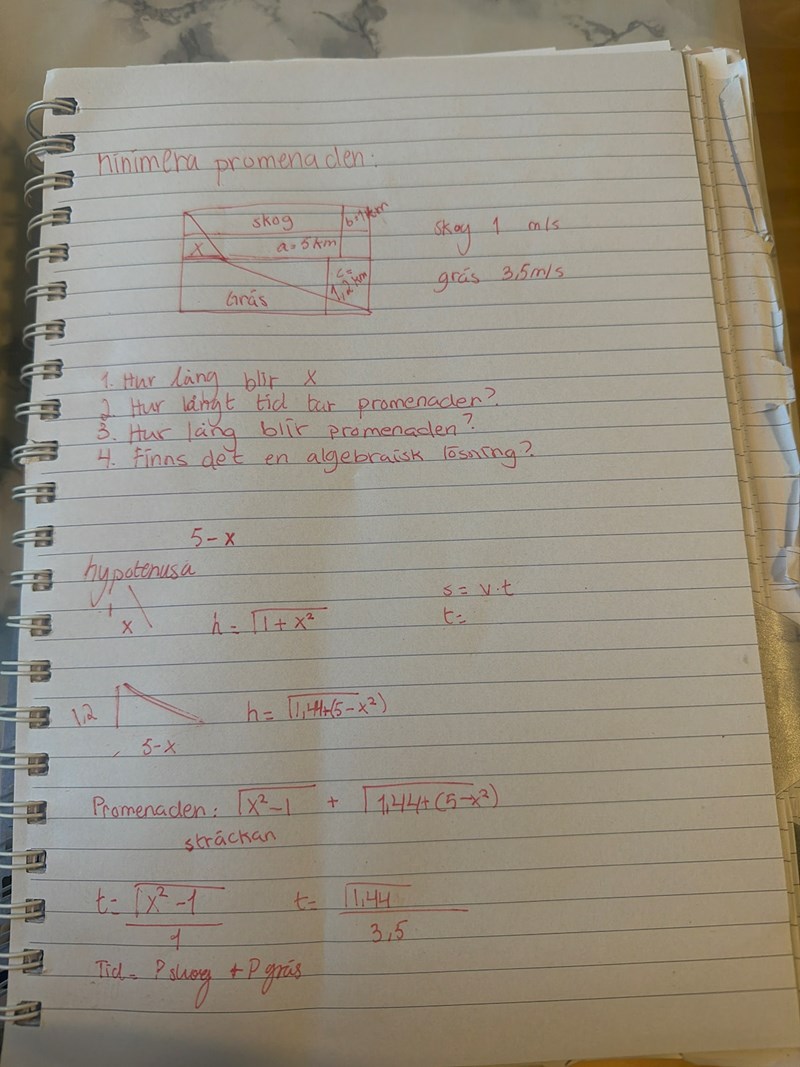 Minimera promenaden:
skog b=1km
x a=5km
Gräs c=1,2km
skog 1 m/s
gräs 3,5m/s
1. Hur lång blir x
2. Hur långt tid tar promenaden?
3. Hur lång blir promenaden?
4. Finns det en algebraisk lösning?
5-x
hypotenusa
1
x
h = √1+x²
s = v·t
t=
1,2
5-x
h= √1,44+(5-x²)
Promenaden: √x²-1 + √1,44+(5-x²)
sträckan
t= √x²-1 / 1
t= √1,44 / 3,5
Tid= P skog + P gräs